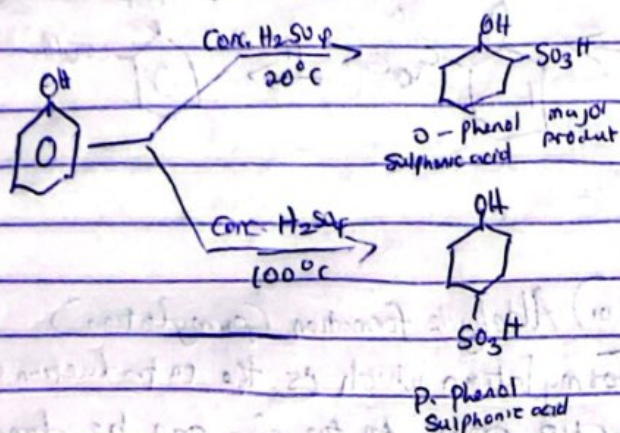 OH
Conc. H2SO4
20°C
OH
SO3H
O - phenol
Sulphonic acid
major
product
Conc. H2SO4
100°C
OH
SO3H
p. phenol
Sulphonic acid